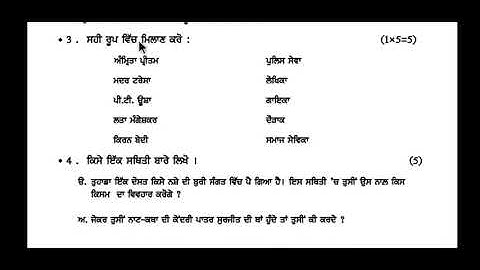 • 3 . ਸਹੀ ਰੂਪ ਵਿੱਚ ਮਿਲਾਣ ਕਰੋ : (1×5=5)
ਅੰਮ੍ਰਿਤਾ ਪ੍ਰੀਤਮ ਪੁਲਿਸ ਸੇਵਾ
ਮਦਰ ਟਰੇਸਾ ਲੇਖਿਕਾ
ਪੀ.ਟੀ. ਊਸ਼ਾ ਗਾਇਕਾ
ਲਤਾ ਮੰਗੇਸ਼ਕਰ ਦੌੜਾਕ
ਕਿਰਨ ਬੇਦੀ ਸਮਾਜ ਸੇਵਿਕਾ
• 4 . ਕਿਸੇ ਇੱਕ ਸਥਿਤੀ ਬਾਰੇ ਲਿਖੋ । (5)
ੳ. ਤੁਹਾਡਾ ਇੱਕ ਦੋਸਤ ਕਿਸੇ ਨਸ਼ੇ ਦੀ ਬੁਰੀ ਸੰਗਤ ਵਿੱਚ ਪੈ ਗਿਆ ਹੈ। ਇਸ ਸਥਿਤੀ 'ਚ ਤੁਸੀਂ ਉਸ ਨਾਲ਼ ਕਿਸ
ਕਿਸਮ ਦਾ ਵਿਵਹਾਰ ਕਰੋਗੇ ?
ਅ. ਜੇਕਰ ਤੁਸੀਂ ਨਾਟ-ਕਥਾ ਦੀ ਕੇਂਦਰੀ ਪਾਤਰ ਸੁਰਜੀਤ ਦੀ ਥਾਂ ਹੁੰਦੇ ਤਾਂ ਤੁਸੀਂ ਕੀ ਕਰਦੇ ?